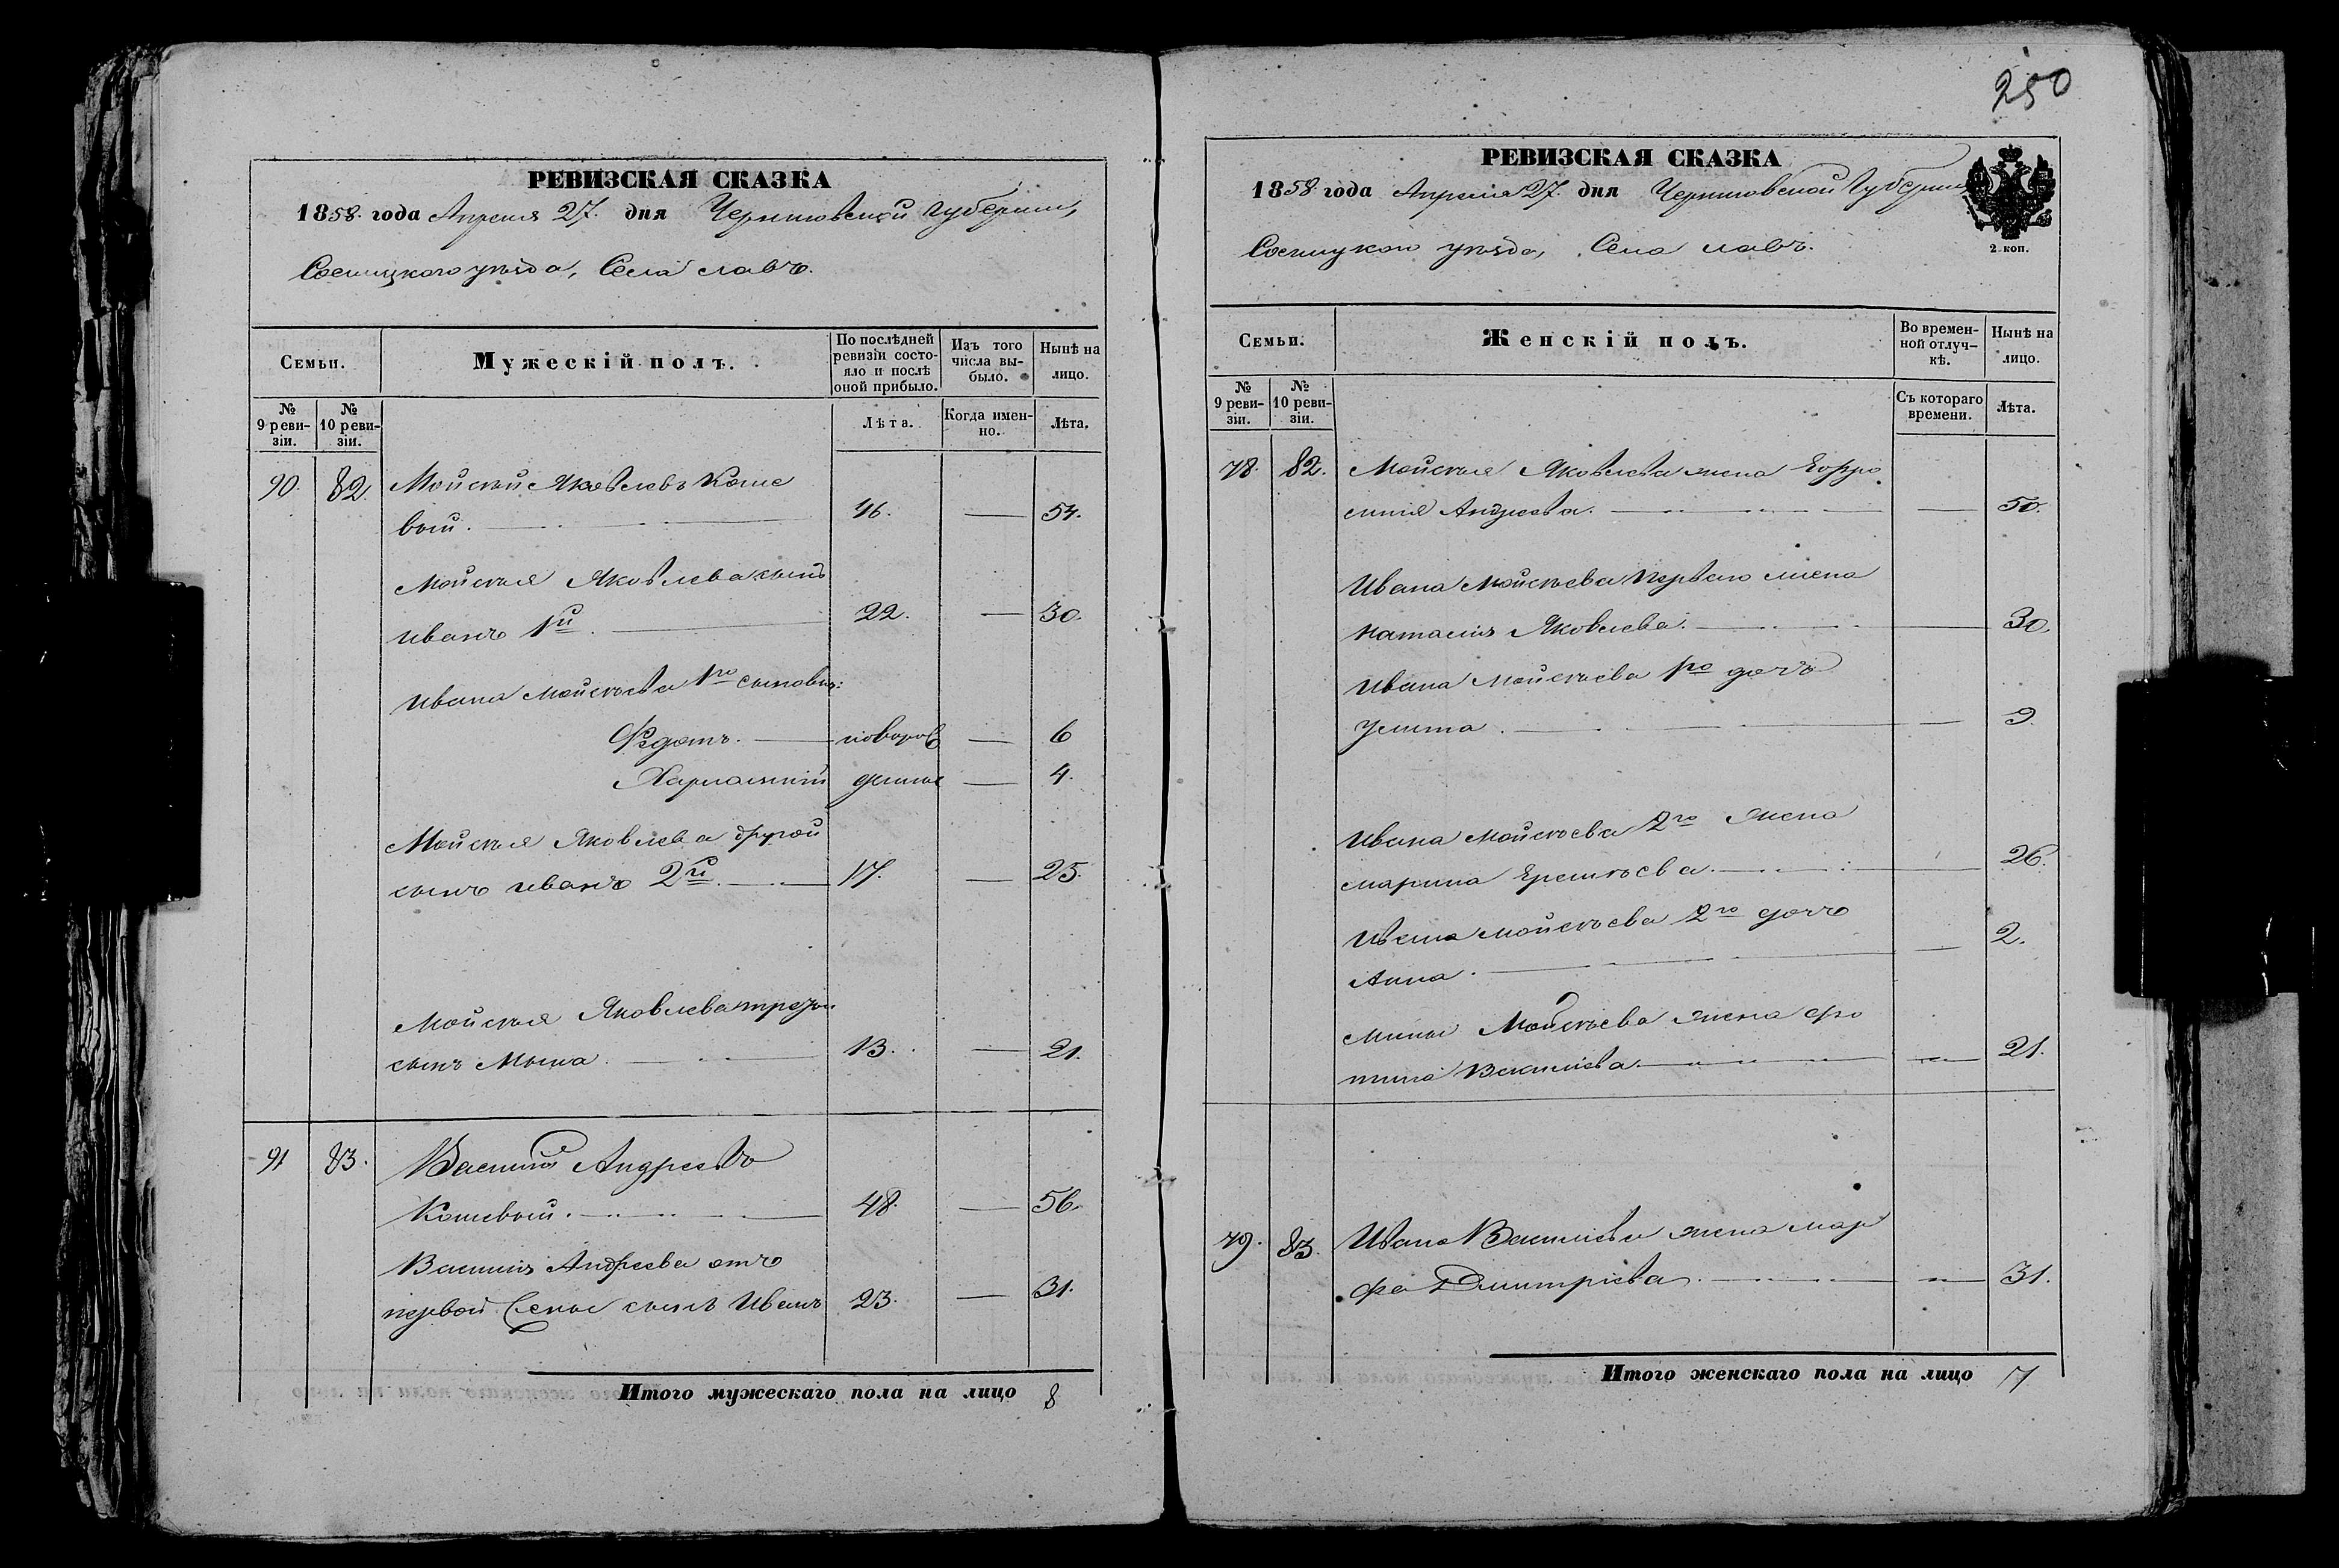 РЕВИЗСКАЯ СКАЗКА
1858 года Апреля 27. дня Черниговской губернии,
Сосницкого уѣзда, Села славъ.
Семьи.
Мужескій полъ.
По послѣдней ревизіи состояло и послѣ оной прибыло.
Изъ того числа выбыло.
Нынѣ на лицо.
№ 9 ревизіи.
№ 10 ревизіи.
Лѣта.
Когда именно.
Лѣта.
90. 82. Мойсей Яковлевъ Коше
вый. 46. 54.
Мойсея Яковлева сынъ
иванъ 1й. 22. 30.
Ивана Мойсеева 1го сыновья:
Федотъ. новорож 6
Харлампий денные 4.
Мойсея Яковлева другой
сынъ иванъ 2й. 17. 25.
Мойсея Яковлева третий
сынъ Мына. 13. 21.
91 83. Василий Андреевъ
Кошевый. 48. 56.
Василия Андреева отъ
первой жены сынъ Иванъ 23. 31.
Итого мужескаго пола на лицо 8
250
РЕВИЗСКАЯ СКАЗКА
1858 года Апреля 27. дня Черниговской Губернии
2 коп.
Сосницкого уѣзда, Села славъ.
Семьи.
Женскій полъ.
Во временной отлучкѣ.
Нынѣ на лицо.
№ 9 ревизіи.
№ 10 ревизіи.
Съ котораго времени.
Лѣта.
78. 82. Мойсея Яковлева жена Ефро
синия Андреева. 50.
Ивана Мойсеева первого жена
наталия Яковлева. 30.
Ивана Мойсеева 1го дочь
Улита. 9.
Ивана Мойсеева 2го жена
марина Еремеева. 26.
Ивана Мойсеева 2го дочь
Анна. 2.
Мины Мойсеева жена фо
тина Василиева. 21.
79. 83. Ивана Василиева жена мар
фа Дмитриева. 31.
Итого женскаго пола на лицо 7